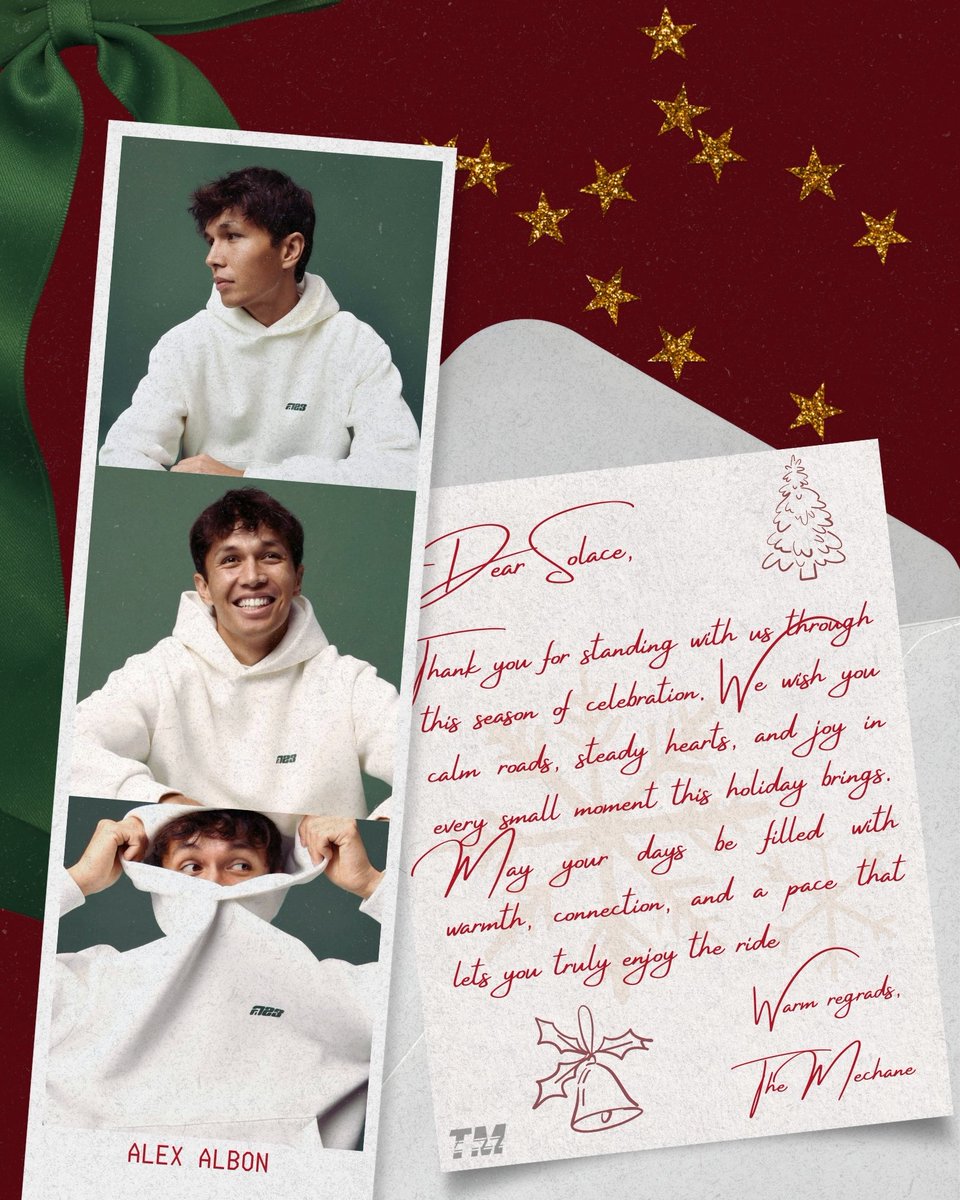 Dear Solace,
Thank you for standing with us through
this season of celebration. We wish you
calm roads, steady hearts, and joy in
every small moment this holiday brings.
May your days be filled with
warmth, connection, and a pace that
lets you truly enjoy the ride
Warm regrads,
The Mechane
TM
ALEX ALBON